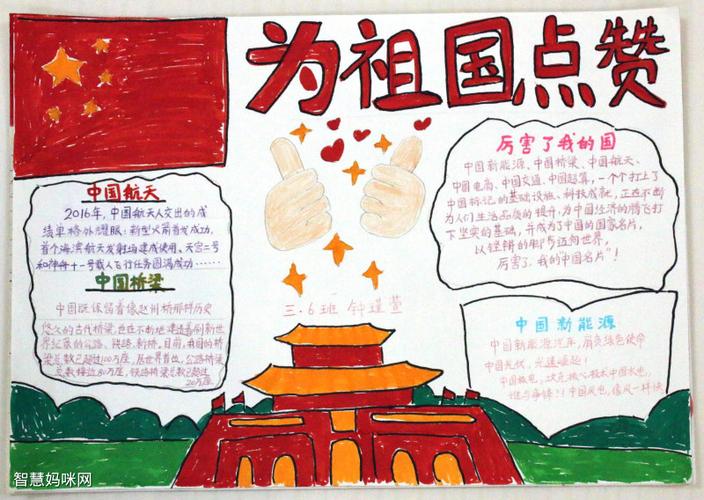 为祖国点赞
中国航天
2016年,中国航天人交出的成
绩单格外耀眼:新型火箭首发成功,
首个海滨航天发射场建成使用、天宫二号
和神舟十一号载人飞行任务圆满成功……
中国桥梁
中国既保留着像赵州桥那样历史
悠久的古代桥梁,也在不断地建造着刷新世
界纪录的公路、铁路新桥。目前,我国的桥
梁总数已超过100万座,居世界首位,公路桥梁
总数接近80万座,铁路桥梁已超过
20万座。
三.6班 钟瑾萱
厉害了我的国
中国新能源、中国桥梁、中国航天、
中国电商、中国交通、中国超算,一个个打上了
中国标记的基础设施、科技成就,正在不断
为人们生活品质的提升,为中国经济的腾飞打
下坚实的基础,并成为了中国的国家名片,
以铿锵的脚步迈向世界,
厉害了,我的中国名片"!
中国新能源
中国新能源汽车,肩负绿色使命
中国光伏,光速崛起!
中国核电,次克核心技术中国水电,
谁与争锋?!中国风电,像风一样快
智慧妈咪网